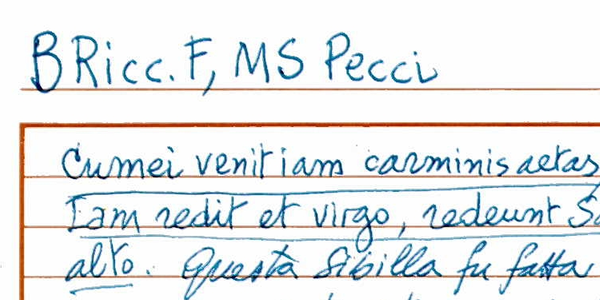 BRicc. F, MS Pecci
Cumei venit iam carminis aetas
Iam redit et virgo, redeunt Sa
alto. Questa Sibilla fu fatta